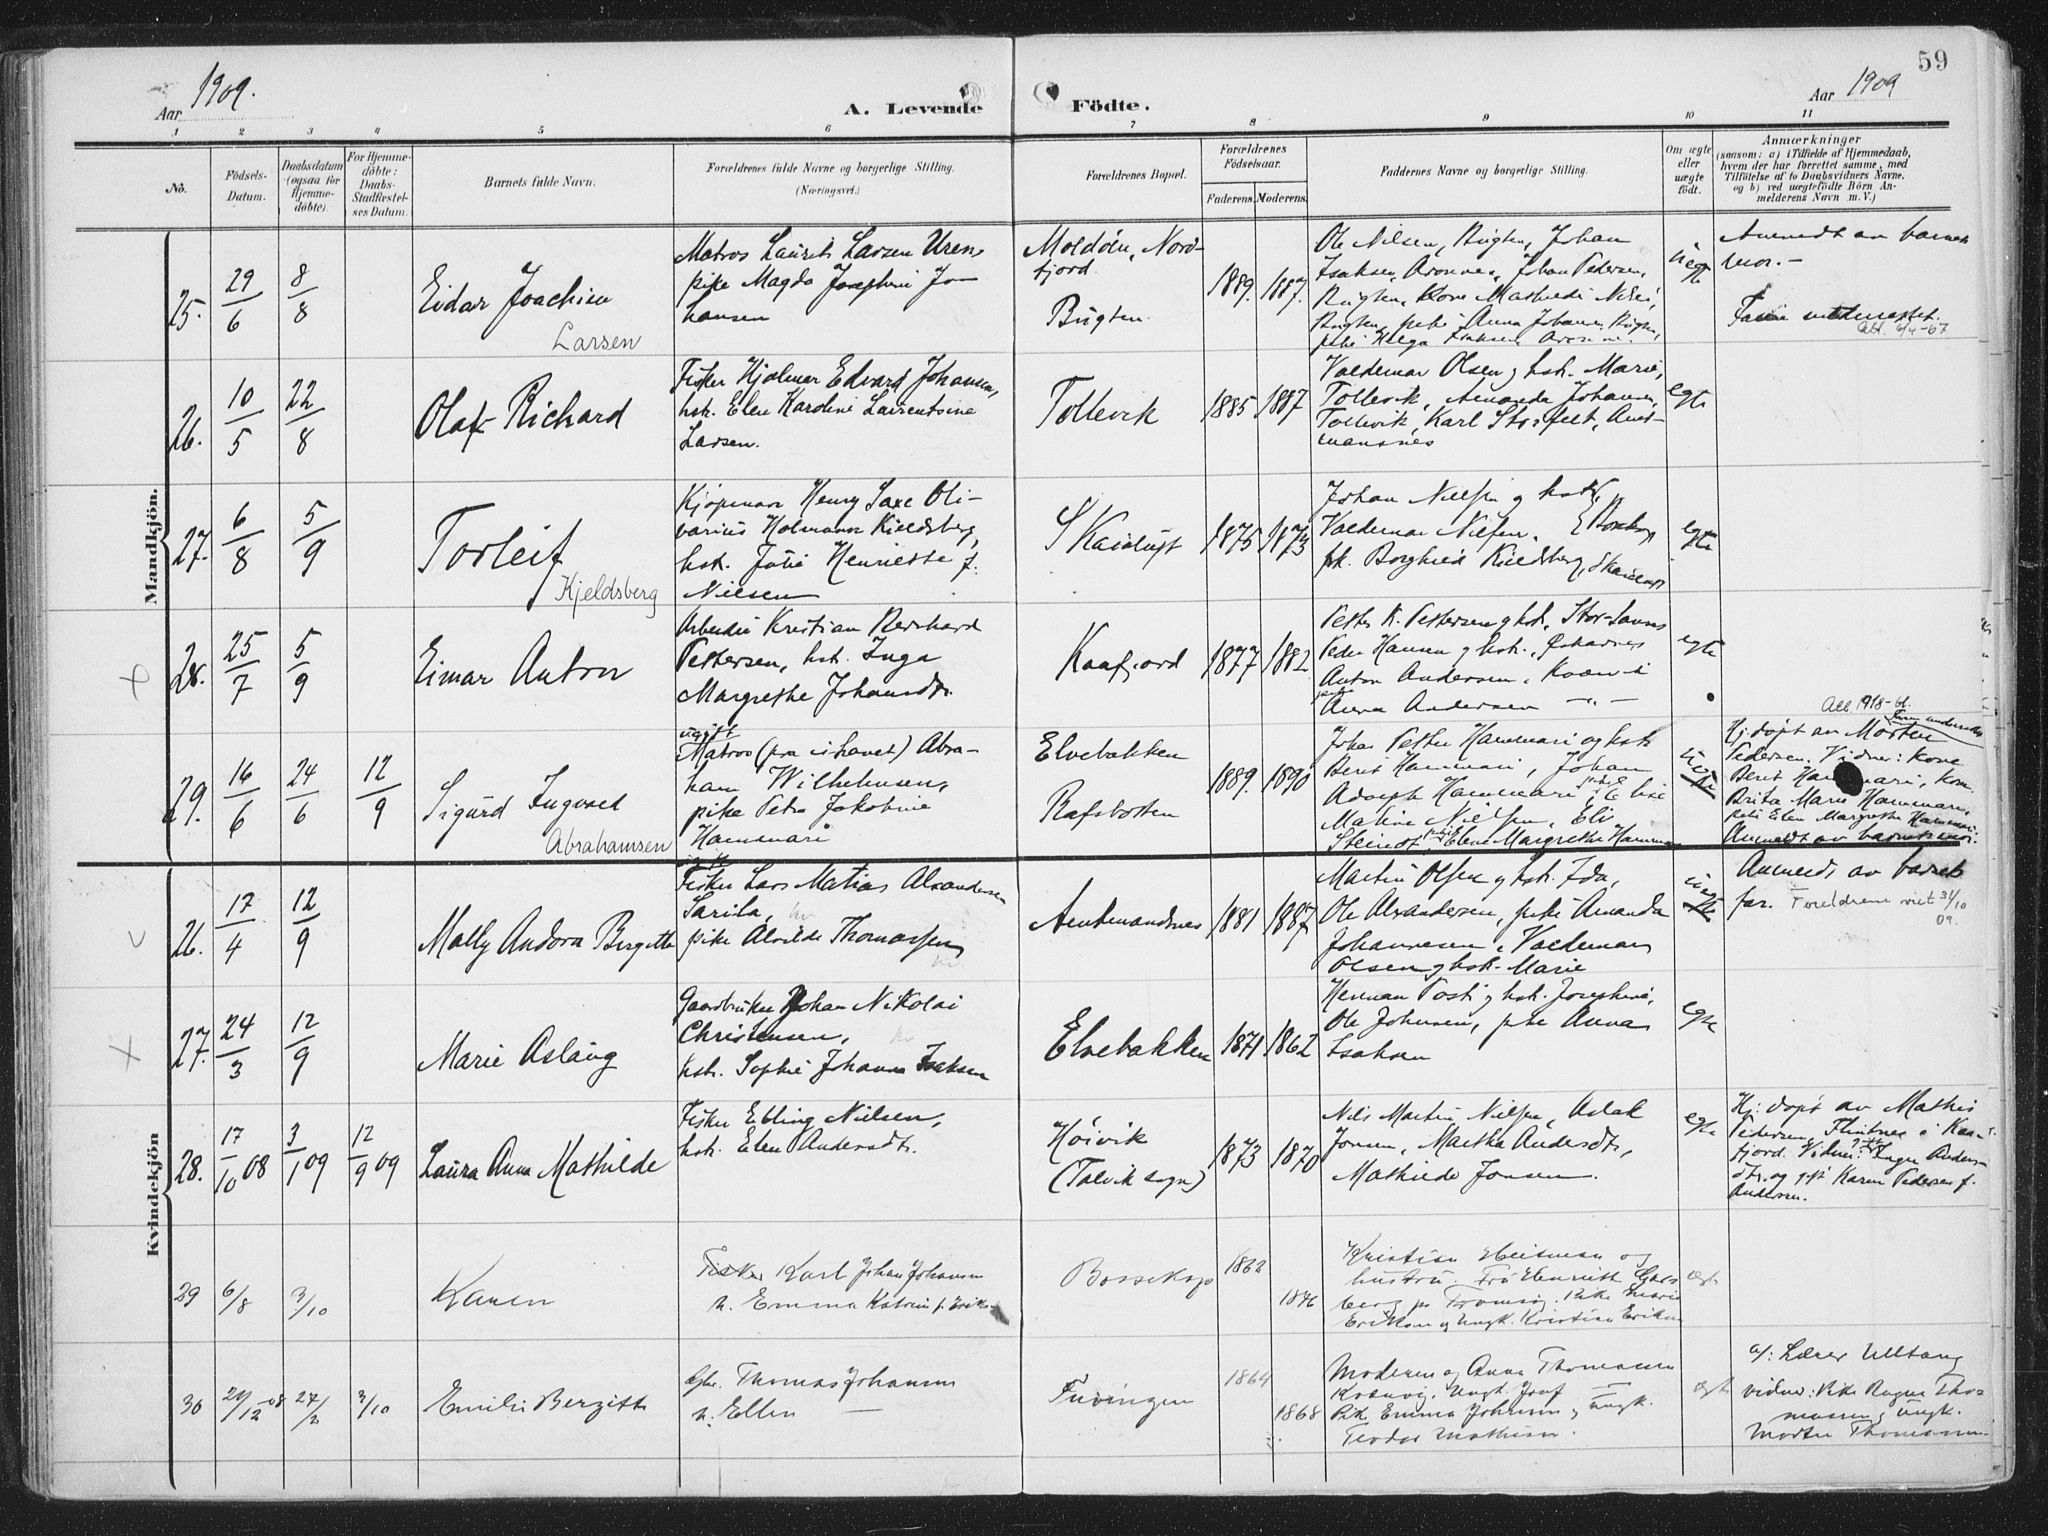 59
Aar 1909.
A. Levende Födte.
Aar 1909
1 2 3 4 5 6 7 8 9 10 11
No.
Födsels-
Datum.
Daabsdatum
(ogsaa for
Hjemme-
döbte).
For Hjemme-
döbte:
Daabs-
Stadfæstel-
ses Datum.
Barnets fulde Navn.
Forældrenes fulde Navne og borgerlige Stilling.
(Næringsvei.)
Forældrenes Bopæl.
Forældrenes
Födselsaar.
Faderens. Moderens.
Faddernes Navne og borgerlige Stilling.
Om ægte
eller
uægte
födt.
Anmærkninger
(saasom: a) i Tilfælde af Hjemmedaab,
hvem der har forrettet samme, med
Tilföielse af to Daabsvidners Navne,
og b) ved uægtefödte Börn An-
melderens Navn m. V.)
Mandkjön.
25.
29/6
8/8
Eidar Joachim
Larsen
Matros Laurits Larsen Urens
pike Magda Josephine Jo-
hansen
Moldöen, Nord-
fjord
Bugten
1889. 1887.
Ole Nilsen, Bugten, Johan
Isaksen, Aronnes, Johan Pedersen,
Bugten, Kone Mathilde
Bugten, pike Anna Johansen, Bugten,
pike Helga Isaksen Aronnes.
uegte
Anmeldt av barnets
mor.-
6/4-67
26.
10/5
22/8
Olaf Richard
Fisker Hjalmar Edvard Johansen,
hst. Elen Karoline Laurentine
Larsen.
Tollevik
1885 1887
Valdemar Olsen g hst. Marie,
Tollevik, Amanda Johansen,
Tollevik, Karl Storfelt, Amt-
mansnes
egte
27.
6/8
5/9
Torleif
Kjeldsberg
Kjöpman Henry Saxe Oli-
varius Holmann Kieldsberg,
hst. Julie Henriette f.
Nielsen
Skaidugt
1875 1873
Johan Nielsen g hst.,
Valdemar Nielsen,
pk. Borghild Kieldsberg, Skaidugt
egte
28.
25/7
5/9
Einar Anton
Arbeider Kristian Reinhard
Pettersen, hst. Inga
Margrethe Johansdtr.
Kaafjord
1877 1882
Petter K. Pettersen g hst.,
Peder Hansen g hst., Johannes
Anton Andersen, Kvænvik
pike
Anna Andersen — " —
egte
29.
16/6
24/6
12/9
Sigurd Ingvald
Abrahamsen
ugift
Matros (fra ishavet) Abra-
ham Wilhelmsen,
pike Petra Jakobine
Hammari
Elvebakken
Rafsbotten
1889. 1890
Johan Petter Hammari og hst.
Berit Hammari, Johan
Adolph Hammari,
Maline Nielsen, Eli
Steindt, Elen Margrethe Hammari
uegte
1918-61.
Hj: döpt av Morten
Pedersen. Vidner: kone
Berit Hammari, kone
Brita Marie Hammari,
pike Elen Margrethe Hammari.
Anmeldt av barnets mor.
Kvindekjön
26.
17/4
12/9
Molly Andora Bergitte
Fisker Lars Matias Alexandersen
Sarila,
pike Alvilde Thomassen
Amtmandsnes
1881 1887
Martin Olsen g hst. Ida,
Ole Alexandersen, pike Amanda
Johannesen, Valdemar
Olsen g hst. Marie
uegte
Anmeldt av barnets
far. Foreldrene viet 31/10
09.
27.
24/3
12/9
Marie Aslaug
Gaardbruker Johan Nikolai
Christensen,
hst. Sophie Johanna Isaksen
Elvebakken
1871 1862
Herman Posti g hst. Josephine,
Ole Johnsen, pike Anna
Isaksen
egte
28.
17/10 08
3/1 09
12/9 09
Laura Anna Mathilde
Fisker Elling Nielsen,
hst. Elen Andersdtr.
Höivik
(Talvik sogn)
1873 1870
Nils Martin Nielsen, Aslak
Jonsen, Martha Andersdtr,
Mathilde Jonsen.
egte
Hj: döpt av Mathis
Pedersen, Flintnes i Kaa-
fjord. Vidner: Inga Anders-
dtr. og gift Karen Pedersen f.
Andersen.
29
6/8
3/10
Karen
Fisker Karl Johan Johansen
h. Emma Katrine f. Eriks.
Bossekop
1862
1876
Kristian Heitman og
hustru. Fru Henriette
berg pr Tromsö. Pike Marie
Eriksen og Ungk. Kristian Eriksen
egte
30
24/12 08
27/2
3/10
Emilie Bergitte
Gbr. Thomas Johansen
h. Ellen —
Tuvingen
1864
1868
Moderen og Anna Thomassen
Kvænvig, Ungk. Josef —
Pik. Emma Johnsen g Ungk.
Teodor Mathisen.
egte
a/: Lærer Ulltang
vidner: Pike Ragna Tho-
massen g Ungk.
Morten Thomassen